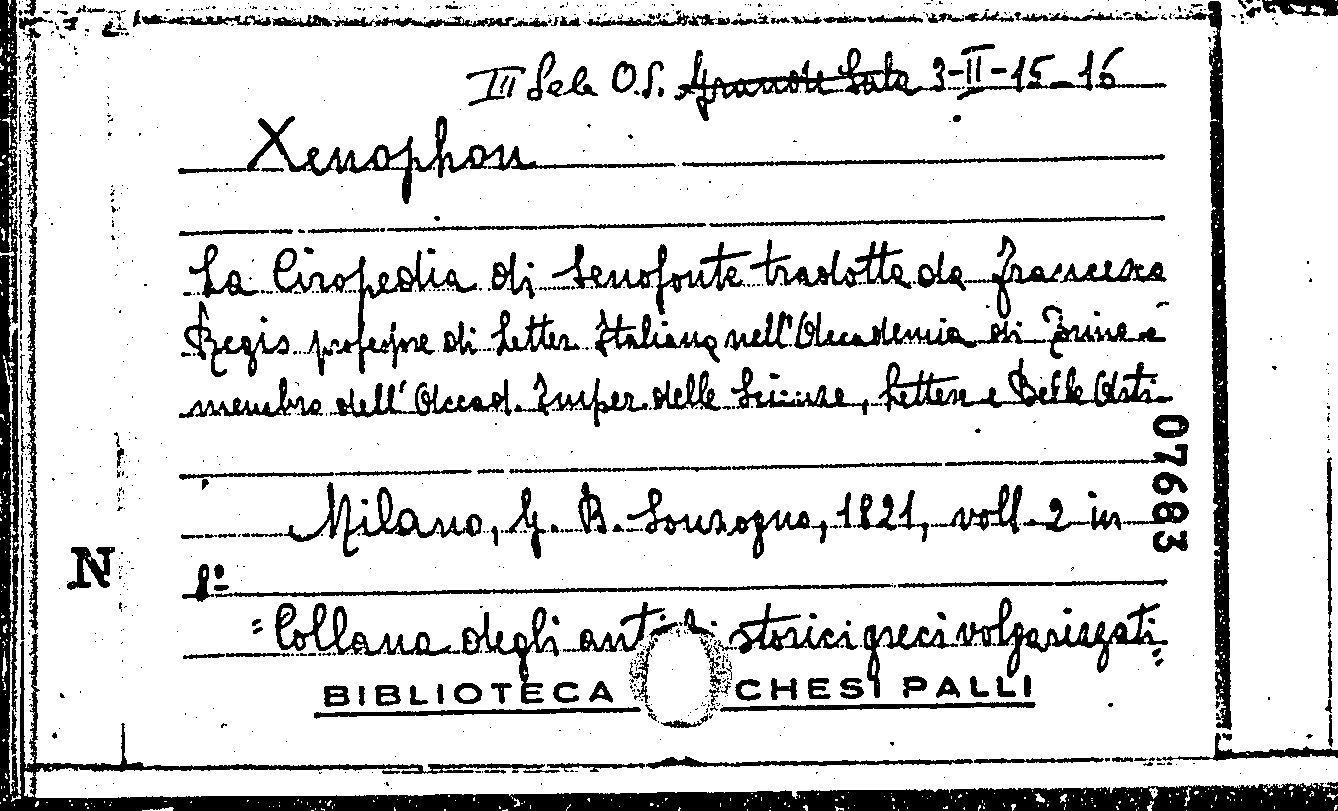 III Sala O.S. Grande Sala 3-II-15-16
Xenophon
La Ciropedia di Senofonte tradotta da Francesco
Regis professore di Letter. Italiana nell'Accademia di Torino e
membro dell'Accad. Imper. delle Scienze, Lettere e Belle Arti-
07683
Milano, G. B. Sonzogno, 1821, voll. 2 in
8º
N
"Collana degli antichi storici greci volgarizzati"
BIBLIOTECA CHESI PALLI